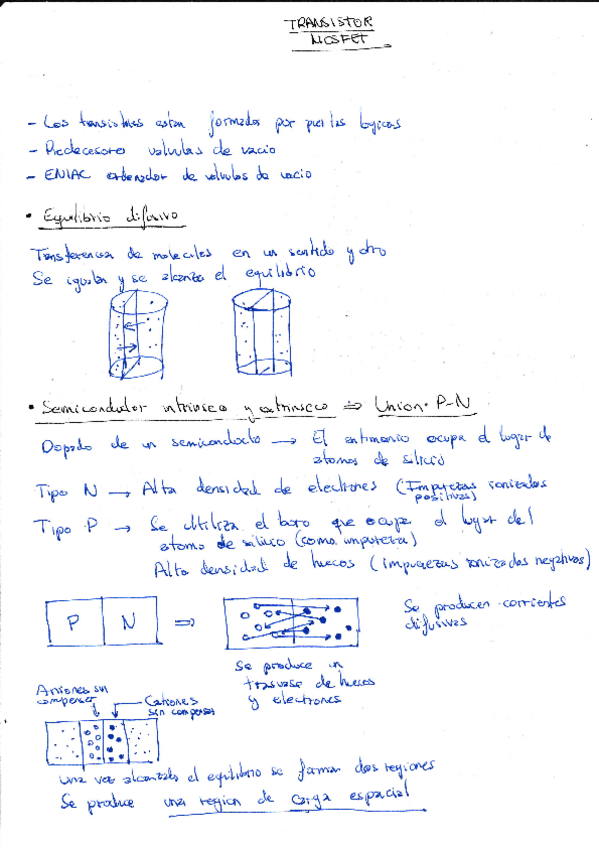 TRANSISTOR
MOSFET
- Los transistores estan formados por puertas logicas
- Predecesores valvulas de vacio
- ENIAC ordenador de valvulas de vacio
• Equilibrio difusivo
Transferencia de moleculas en un sentido y otro
Se igualan y se alcanza el equilibrio
• Semiconductor intrinseco y extrinseco => Union P-N
Dopado de un semiconductor → El antimonio ocupa el lugar de
atomos de silicio
Tipo N → Alta densidad de electrones (Impurezas ionizadas
positivas)
Tipo P → Se utiliza el boro que ocupa el lugar del
atomo de silicio (como impureza)
Alta densidad de huecos (impurezas ionizadas negativas)
P N =>
Se producen corrientes
difusivas
Se produce un
trasvase de huecos
y electrones
Aniones sin
compensar
Cationes
sin compensar
una vez alcanzado el equilibrio se forman dos regiones
Se produce una region de carga espacial